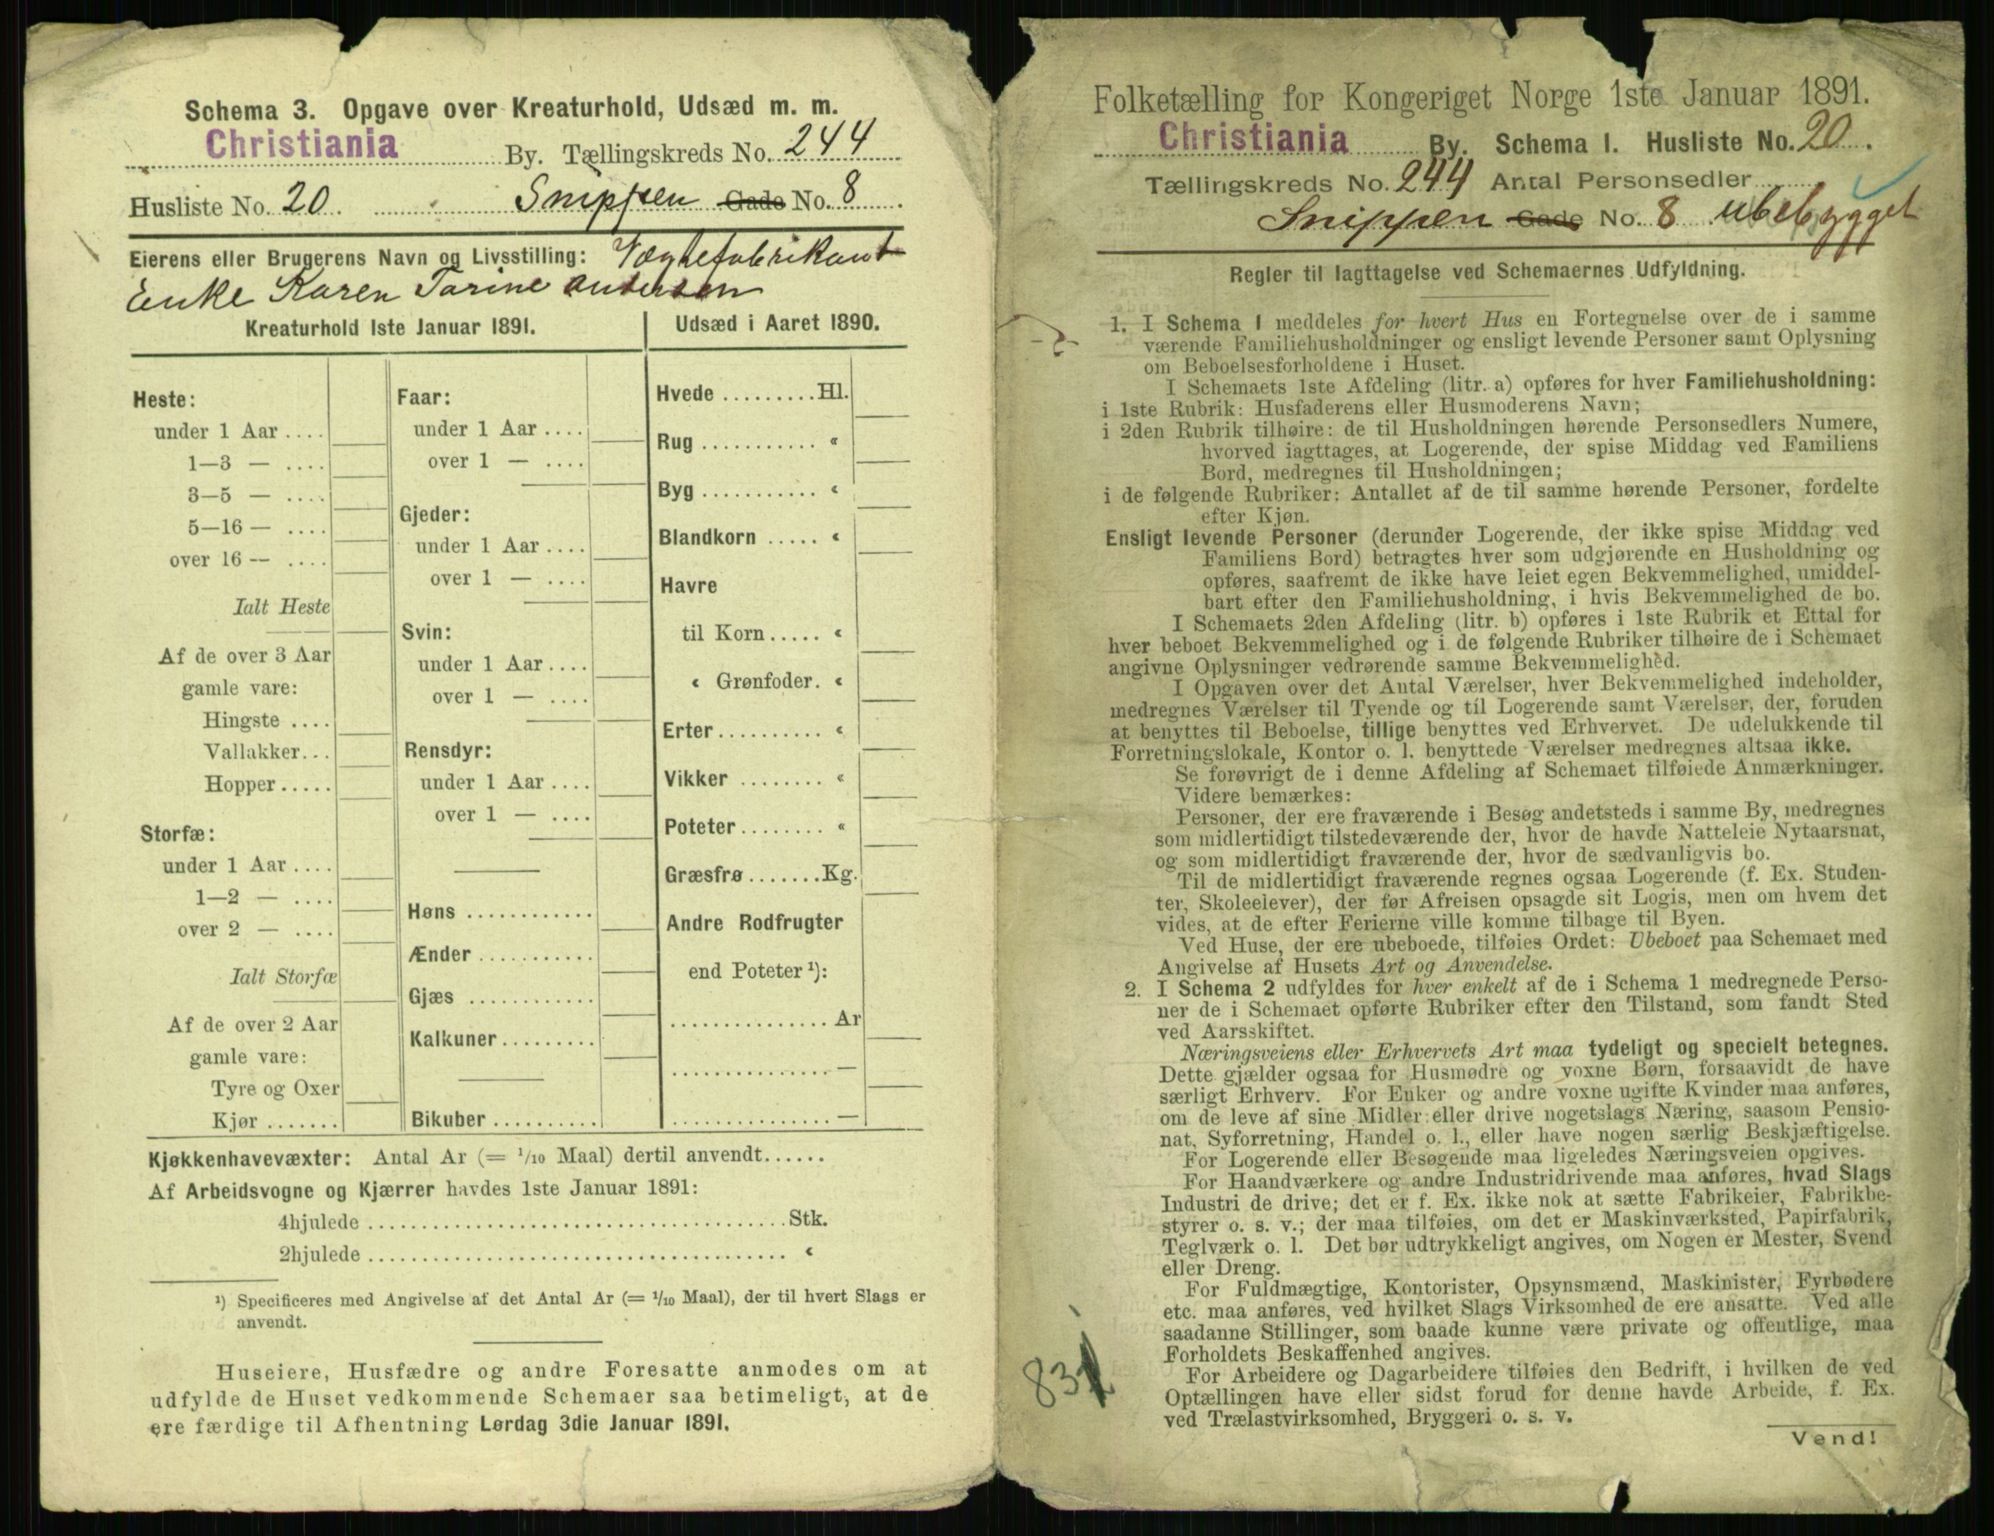 Schema 3. Opgave over Kreaturhold, Udsæd m. m.
Christiania By. Tællingskreds No. 244
Husliste No. 20 Snippen Gade No. 8
Eierens eller Brugerens Navn og Livsstilling: Vægtefabrikant
Enke Karen Tarine Andersen
Kreaturhold 1ste Januar 1891.
Heste:
under 1 Aar ....
1—3 — ....
3—5 — ....
5—16 — ....
over 16 — ....
Ialt Heste
Af de over 3 Aar
gamle vare:
Hingste ....
Vallakker...
Hopper.....
Storfæ:
under 1 Aar ....
1—2 — ....
over 2 — ....
Ialt Storfæ
Af de over 2 Aar
gamle vare:
Tyre og Oxer
Kjør .......
Faar:
under 1 Aar ....
over 1 — ....
Gjeder:
under 1 Aar ....
over 1 — ....
Svin:
under 1 Aar ....
over 1 — ....
Rensdyr:
under 1 Aar ....
over 1 — ....
Høns ............
Ænder ...........
Gjæs ............
Kalkuner.........
Bikuber ..........
Udsæd i Aaret 1890.
Hvede .........Hl.
Rug ........... «
Byg ........... «
Blandkorn ..... «
Havre
til Korn..... «
« Grønfoder. «
Erter.......... «
Vikker ........ «
Poteter........ «
Græsfrø.......Kg.
Andre Rodfrugter
end Poteter ¹):
............... Ar
............... —
............... —
Kjøkkenhavevæxter: Antal Ar (= 1/10 Maal) dertil anvendt......
Af Arbeidsvogne og Kjærrer havdes 1ste Januar 1891:
4hjulede ....................................Stk.
2hjulede .................................... «
¹) Specificeres med Angivelse af det Antal Ar (= 1/10 Maal), der til hvert Slags er
anvendt.
Huseiere, Husfædre og andre Foresatte anmodes om at
udfylde de Huset vedkommende Schemaer saa betimeligt, at de
ere færdige til Afhentning Lørdag 3die Januar 1891.
Folketælling for Kongeriget Norge 1ste Januar 1891.
Christiania By. Schema 1. Husliste No. 20.
Tællingskreds No. 244 Antal Personsedler
Snippen Gade No. 8 ubebygget
Regler til Iagttagelse ved Schemaernes Udfyldning.
1. I Schema 1 meddeles for hvert Hus en Fortegnelse over de i samme
værende Familiehusholdninger og ensligt levende Personer samt Oplysning
om Beboelsesforholdene i Huset.
I Schemaets 1ste Afdeling (litr. a) opføres for hver Familiehusholdning:
i 1ste Rubrik: Husfaderens eller Husmoderens Navn;
i 2den Rubrik tilhøire: de til Husholdningen hørende Personsedlers Numere,
hvorved iagttages, at Logerende, der spise Middag ved Familiens
Bord, medregnes til Husholdningen;
i de følgende Rubriker: Antallet af de til samme hørende Personer, fordelte
efter Kjøn.
Ensligt levende Personer (derunder Logerende, der ikke spise Middag ved
Familiens Bord) betragtes hver som udgjørende en Husholdning og
opføres, saafremt de ikke have leiet egen Bekvemmelighed, umiddel-
bart efter den Familiehusholdning, i hvis Bekvemmelighed de bo.
I Schemaets 2den Afdeling (litr. b) opføres i 1ste Rubrik et Ettal for
hver beboet Bekvemmelighed og i de følgende Rubriker tilhøire de i Schemaet
angivne Oplysninger vedrørende samme Bekvemmelighed.
I Opgaven over det Antal Værelser, hver Bekvemmelighed indeholder,
medregnes Værelser til Tyende og til Logerende samt Værelser, der, foruden
at benyttes til Beboelse, tillige benyttes ved Erhvervet. De udelukkende til
Forretningslokale, Kontor o. l. benyttede Værelser medregnes altsaa ikke.
Se forøvrigt de i denne Afdeling af Schemaet tilføiede Anmærkninger.
Videre bemærkes:
Personer, der ere fraværende i Besøg andetsteds i samme By, medregnes
som midlertidigt tilstedeværende der, hvor de havde Natteleie Nytaarsnat,
og som midlertidigt fraværende der, hvor de sædvanligvis bo.
Til de midlertidigt fraværende regnes ogsaa Logerende (f. Ex. Studen-
ter, Skoleelever), der før Afreisen opsagde sit Logis, men om hvem det
vides, at de efter Ferierne ville komme tilbage til Byen.
Ved Huse, der ere ubeboede, tilføies Ordet: Ubeboet paa Schemaet med
Angivelse af Husets Art og Anvendelse.
2. I Schema 2 udfyldes for hver enkelt af de i Schema 1 medregnede Perso-
ner de i Schemaet opførte Rubriker efter den Tilstand, som fandt Sted
ved Aarsskiftet.
Næringsveiens eller Erhvervets Art maa tydeligt og specielt betegnes.
Dette gjælder ogsaa for Husmødre og voxne Børn, forsaavidt de have
særligt Erhverv. For Enker og andre voxne ugifte Kvinder maa anføres,
om de leve af sine Midler eller drive nogetslags Næring, saasom Pensio-
nat, Syforretning, Handel o. l., eller have nogen særlig Beskjæftigelse.
For Logerende eller Besøgende maa ligeledes Næringsveien opgives.
For Haandværkere og andre Industridrivende maa anføres, hvad Slags
Industri de drive; det er f. Ex. ikke nok at sætte Fabrikeier, Fabrikbe-
styrer o. s. v.; der maa tilføies, om det er Maskinværksted, Papirfabrik,
Teglværk o. l. Det bør udtrykkeligt angives, om Nogen er Mester, Svend
eller Dreng.
For Fuldmægtige, Kontorister, Opsynsmænd, Maskinister, Fyrbødere
etc. maa anføres, ved hvilket Slags Virksomhed de ere ansatte. Ved alle
saadanne Stillinger, som baade kunne være private og offentlige, maa
Forholdets Beskaffenhed angives.
For Arbeidere og Dagarbeidere tilføies den Bedrift, i hvilken de ved
Optællingen have eller sidst forud for denne havde Arbeide, f. Ex.
ved Trælastvirksomhed, Bryggeri o. s. v.
Vend!